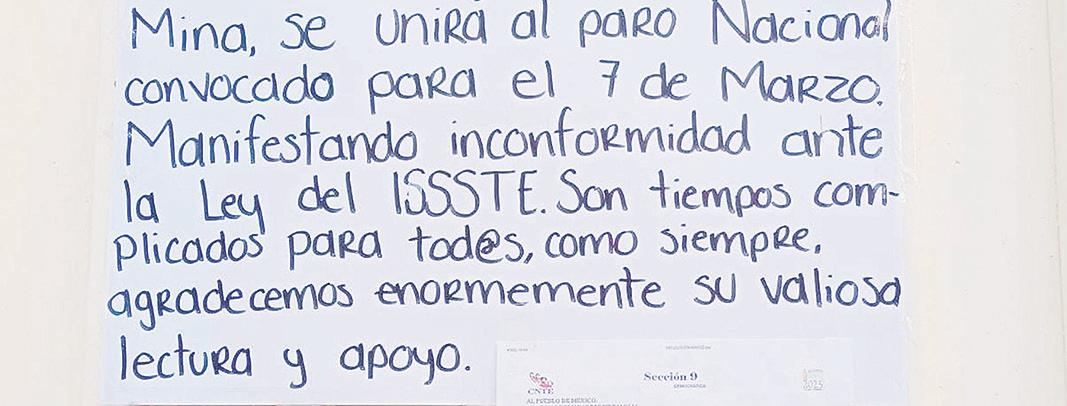 Mina, se unirá al paro Nacional
convocado para el 7 de Marzo.
Manifestando inconformidad ante
la Ley del ISSSTE. Son tiempos com-
plicados para tod@s, como siempre,
agradecemos enormemente su valiosa
lectura y apoyo.
CNTE
Sección 9
DEMOCRÁTICA
2025
AL PUEBLO DE MÉXICO.